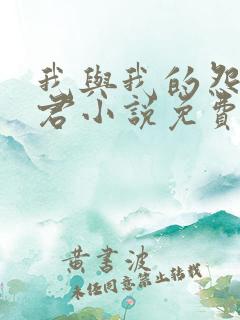 我與我的怨
君小說免費
黃書波
未任同意禁止轉載